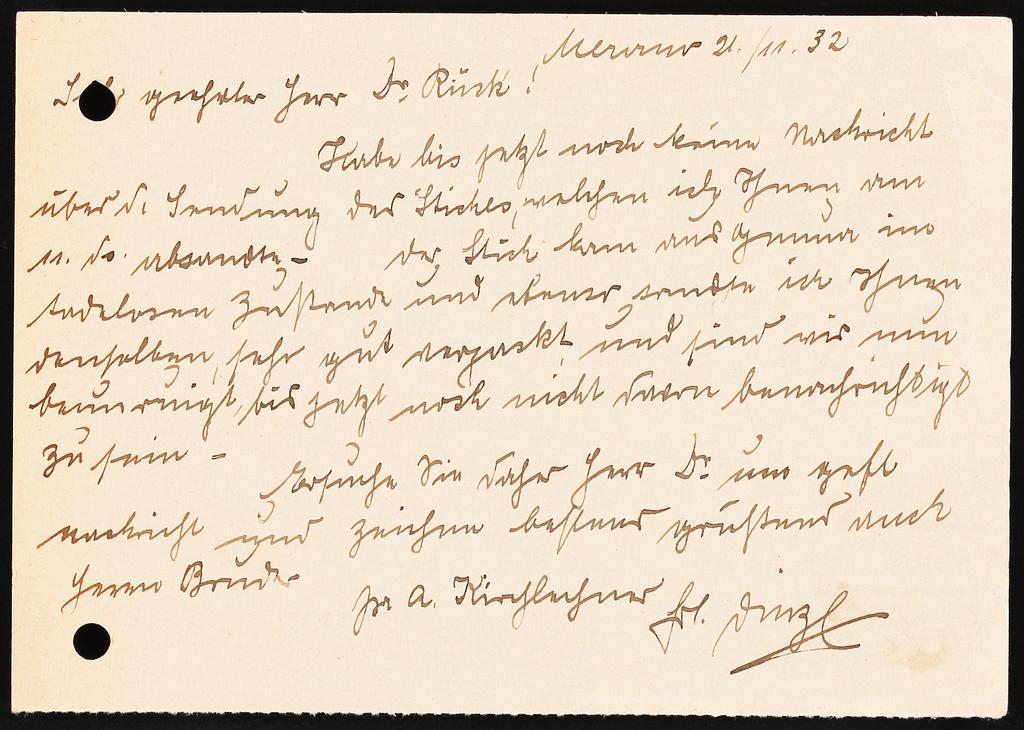 Merano 21./11. 32
Sehr geehrter Herr Dr. Rück!
Habe bis jetzt noch keine Nachricht
über d. Sendung des Stiches, welchen ich Ihnen am
11. ds. absandte. - Der Stich kam aus Genua im
tadelosen Zustande und ebenso sandte ich Ihnen
denselben, sehr gut verpackt, und sind wir nun
beunruigt, bis jetzt noch nicht davon benachrichtigt
zu sein =
Ersuche Sie daher Herr Dr. um gefl
Nachricht und zeichne bestens grüßend auch
Herrn Bruder
pr A. Kirchlechner Frl. Dinzl